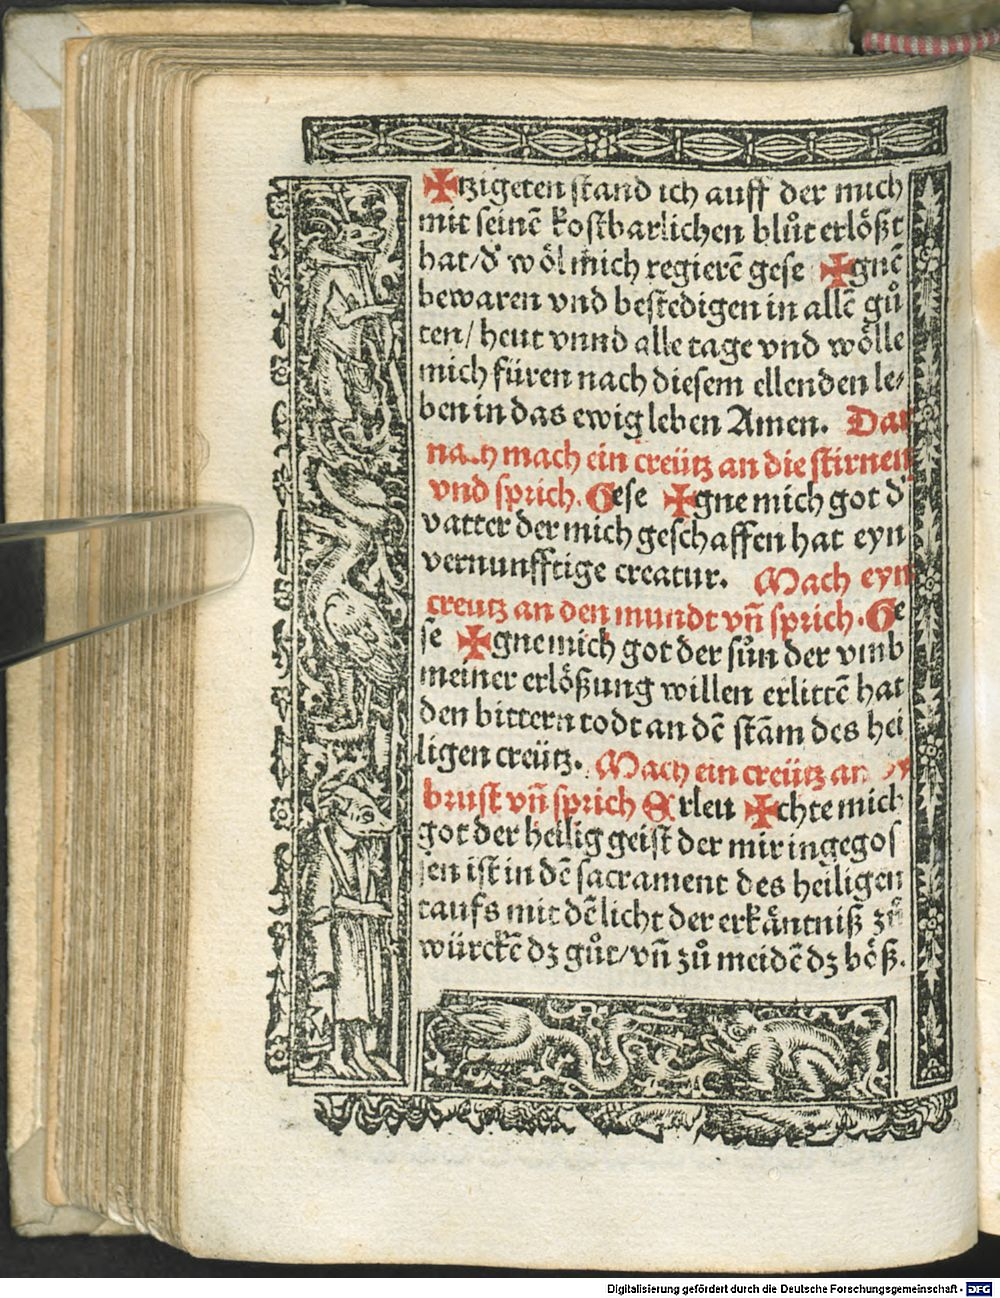 ✠tzigeten stand ich auff der mich
mit seinē kostbarlichen blůt erlößt
hat/d' wöl mich regierē gese ✠gnē
bewaren vnd bestedigen in allē gů
ten/ heut vnnd alle tage vnd wölle
mich füren nach diesem ellenden le⸗
ben in das ewig leben Amen. Dar
nach mach ein creütz an die stirnen
vnd sprich. Gese ✠gne mich got d'
vatter der mich geschaffen hat eyn
vernunfftige creatur. Mach eyn
creutz an den mundt vñ sprich. Ge
se ✠gne mich got der sůn der vmb
meiner erlößung willen erlittē hat
den bittern todt an dē stām des hei
ligen creütz. Mach ein creütz an
brust vñ sprich Erleu ✠chte mich
got der heilig geist der mir ingegos
sen ist in dē sacrament des heiligen
taufs mit dē licht der erkāntniß zů
würckē dz gůt/vñ zů meidē dz böß.
Digitalisierung gefördert durch die Deutsche Forschungsgemeinschaft - DFG